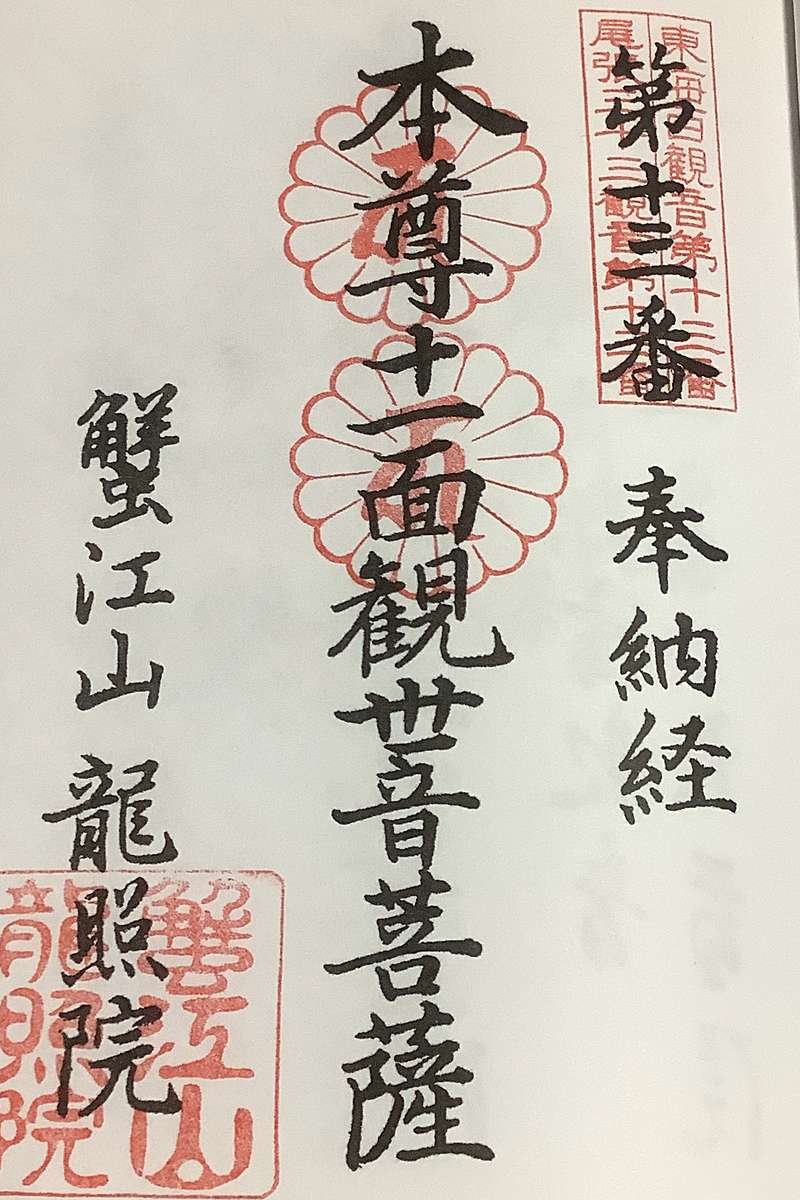 東海百観音第十三番
尾張三十三観音第十三番
第十三番
奉納経
本尊十一面観世音菩薩
蟹江山 龍照院
蟹江山
龍照院